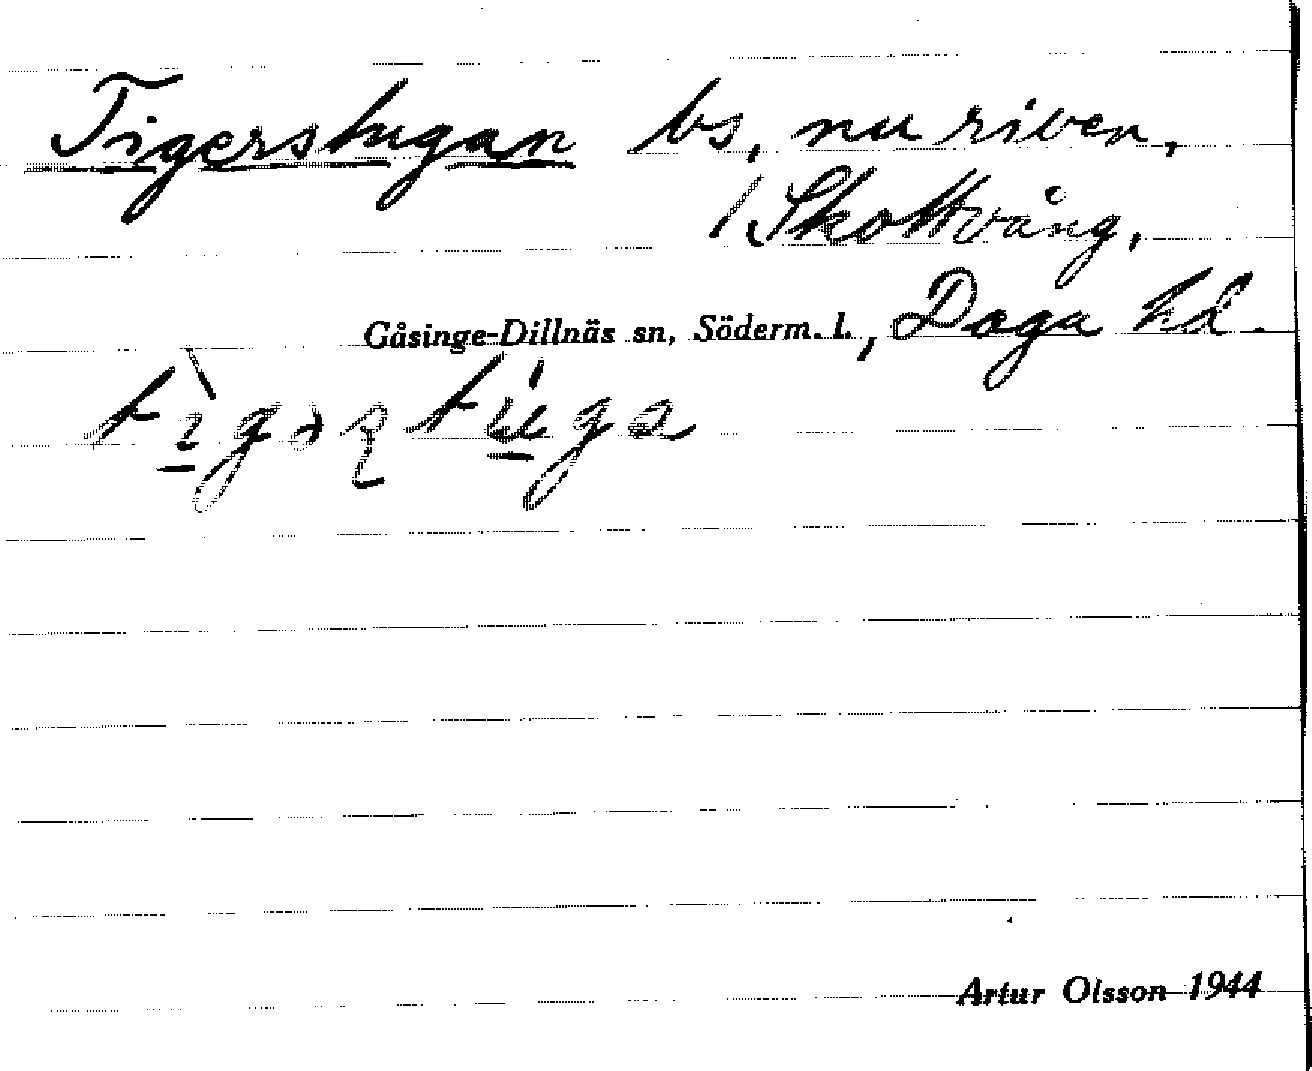 Tigerstugan bs, nu riven,
/ Skottvång,
Gåsinge-Dillnäs sn, Söderm. l., Daga hd.
Artur Olsson 1944